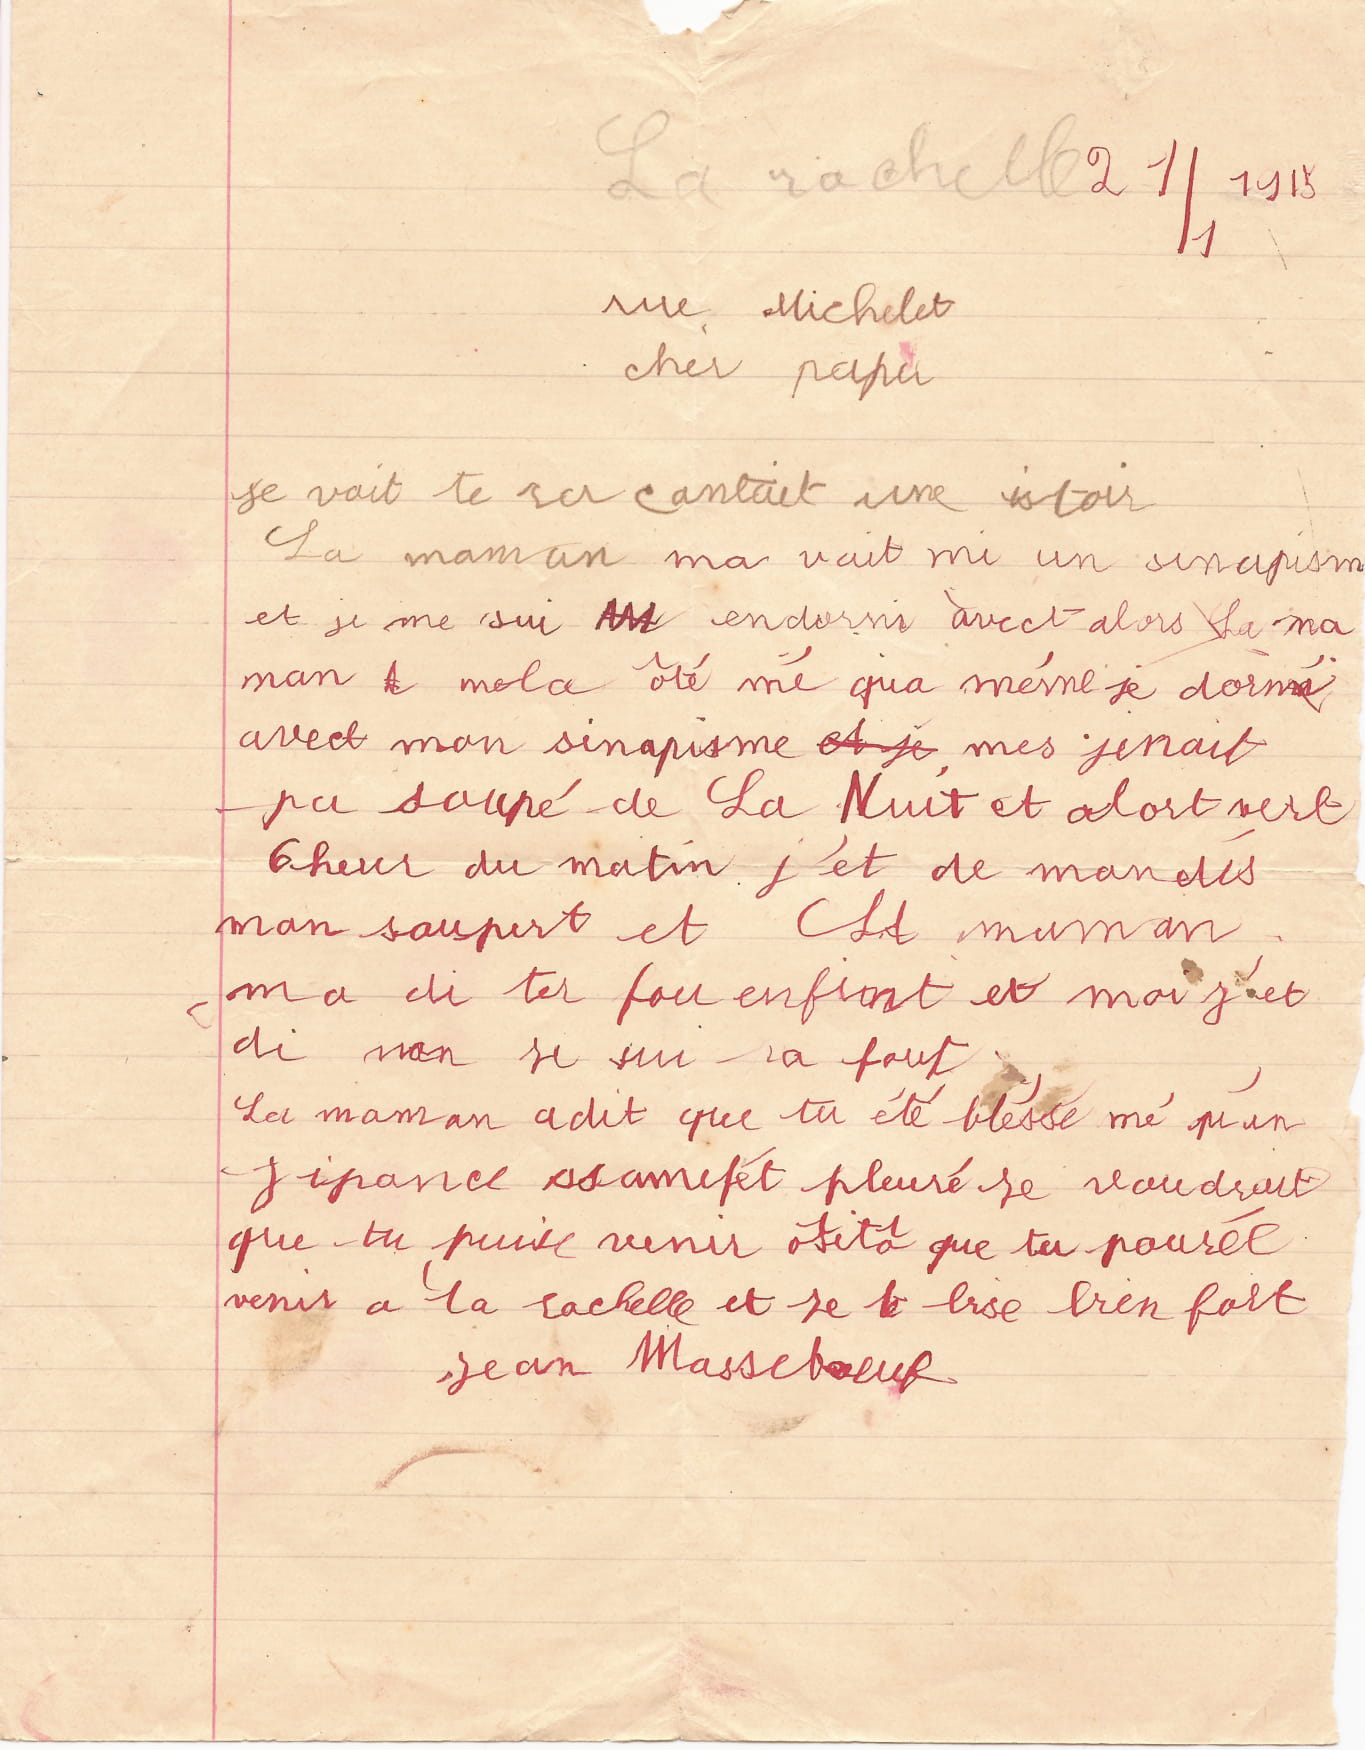 La rochelle 21/1 1915
rue Michelet
cher papa
je vait te ra contait une istoir
La maman ma vait mi un sinapism
et je me sui endormi avect alors La ma
man mela ôté mé qua méme je dormé
avect mon sinapisme et je mes jenait
pa soupé de La Nuit et alort vert
6 heur du matin j'et de mandés
mon soupert et La maman
ma di ter fou enfint et moi j'et
di non je sui pa fout
La maman adit que tu été bléssé mé qu'an
j ipance ssamefét pleuré je voudrait
que tu puise venir ôsitô que tu pourél
venir a la rochelle et je te bise bien fort
jean Masseboeuf